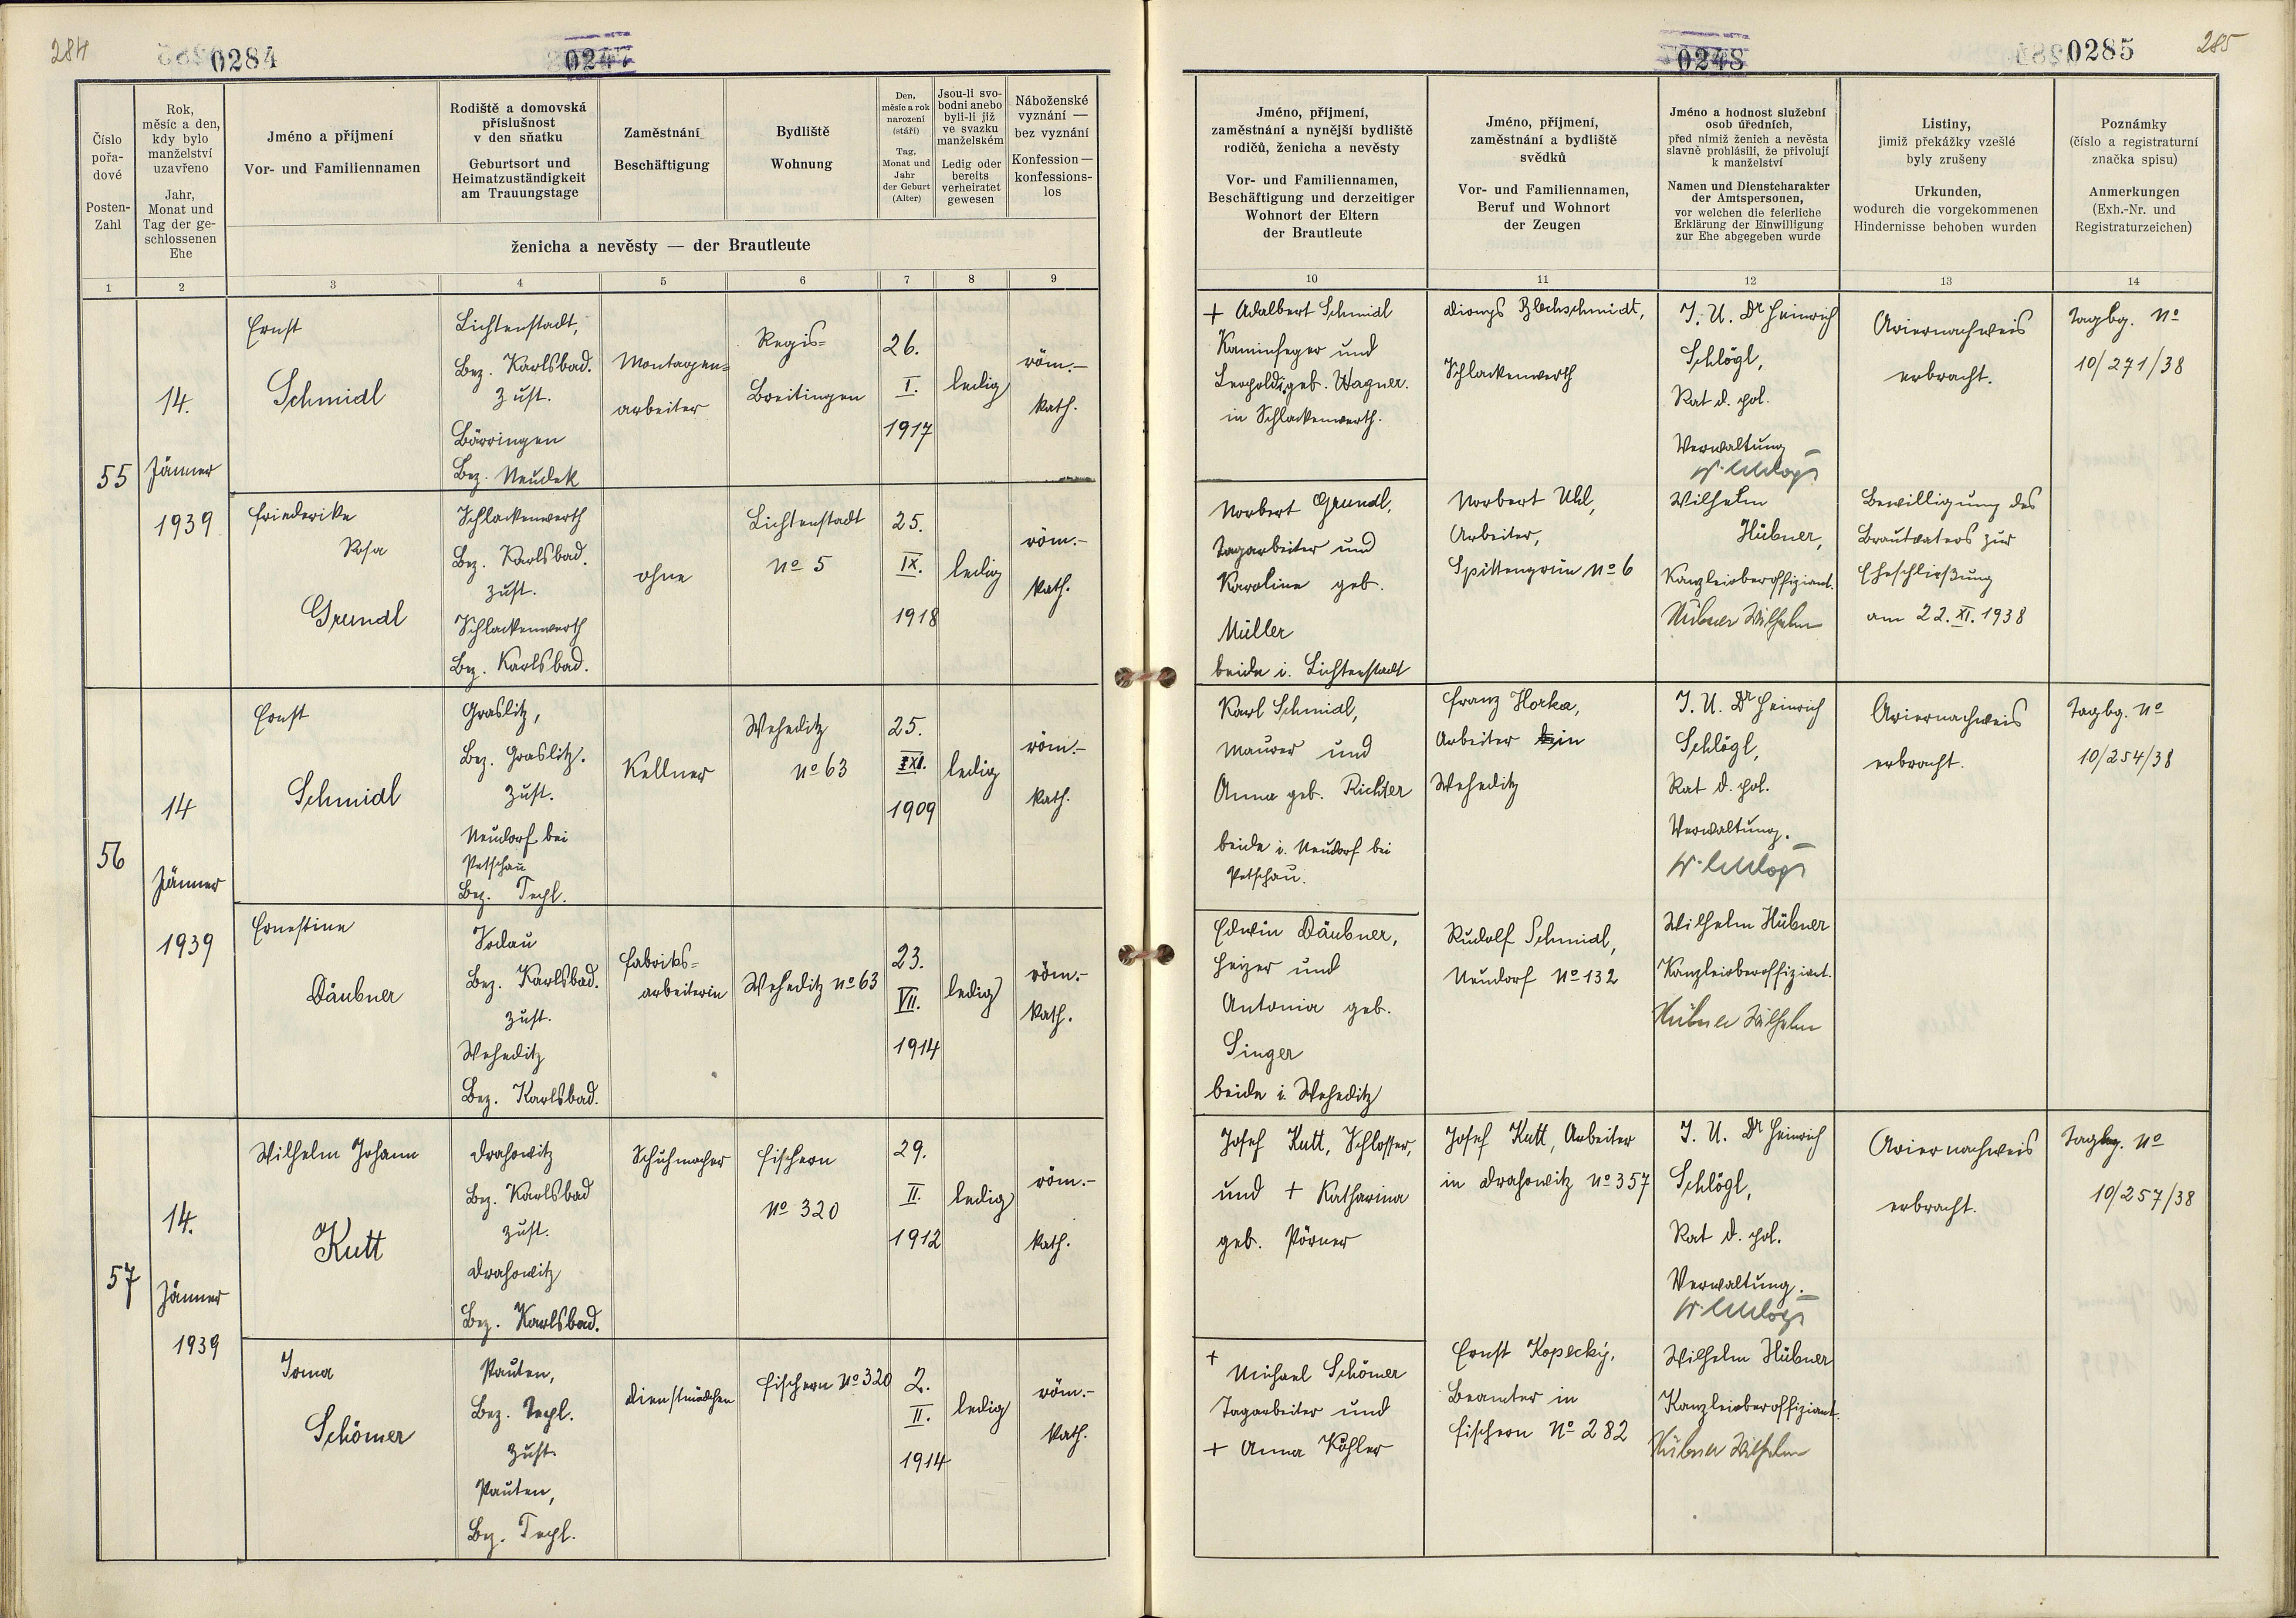 284
0284
0247
Číslo
pořa-
dové
Posten-
Zahl
Rok,
měsíc a den,
kdy bylo
manželství
uzavřeno
Jahr,
Monat und
Tag der ge-
schlossenen
Ehe
Jméno a příjmení
Vor- und Familiennamen
Rodiště a domovská
příslušnost
v den sňatku
Geburtsort und
Heimatzuständigkeit
am Trauungstage
Zaměstnání
Beschäftigung
Bydliště
Wohnung
Den,
měsíc a rok
narození
(stáří)
Tag,
Monat und
Jahr
der Geburt
(Alter)
Jsou-li svo-
bodni anebo
byli-li již
ve svazku
manželském
Ledig oder
bereits
verheiratet
gewesen
Náboženské
vyznání —
bez vyznání
Konfession —
konfessions-
los
ženicha a nevěsty — der Brautleute
1 2 3 4 5 6 7 8 9
55
14.
Jänner
1939
Ernst
Schmidl
Lichtenstadt,
Bez. Karlsbad.
zust.
Bärringen
Bez. Neudek
Montagen=
arbeiter
Regis=
Breitingen
26.
I.
1917
ledig
röm.-
kath.
Friederike
Rosa
Grundl
Schlackenwerth
Bez. Karlsbad.
zust.
Schlackenwerth
Bez. Karlsbad.
ohne
Lichtenstadt
No 5
25.
IX.
1918
ledig
röm.-
kath.
56
14
Jänner
1939
Ernst
Schmidl
Graslitz,
Bez. Graslitz.
zust.
Neudorf bei
Petschau
Bez. Tepl.
Kellner
Weheditz
No 63
25.
XI.
1909
ledig
röm.-
kath.
Ernestine
Däubner
Sodau
Bez. Karlsbad.
zust.
Weheditz
Bez. Karlsbad.
Fabriks=
arbeiterin
Weheditz No 63
23.
VII.
1914
ledig
röm.-
kath.
57
14.
Jänner
1939
Wilhelm Johann
Kutt
Drahowitz
Bez. Karlsbad
zust.
Drahowitz
Bez. Karlsbad.
Schuhmacher
Fischern
No 320
29.
II.
1912
ledig
röm.-
kath.
Irma
Schömer
Pauten,
Bez. Tepl.
zust.
Pauten,
Bez. Tepl.
Dienstmädchen
Fischern No 320
2.
II.
1914
ledig
röm.-
kath.
0248
0285
285
Jméno, příjmení,
zaměstnání a nynější bydliště
rodičů, ženicha a nevěsty
Vor- und Familiennamen,
Beschäftigung und derzeitiger
Wohnort der Eltern
der Brautleute
Jméno, příjmení,
zaměstnání a bydliště
svědků
Vor- und Familiennamen,
Beruf und Wohnort
der Zeugen
Jméno a hodnost služební
osob úředních,
před nimiž ženich a nevěsta
slavně prohlásili, že přivolují
k manželství
Namen und Dienstcharakter
der Amtspersonen,
vor welchen die feierliche
Erklärung der Einwilligung
zur Ehe abgegeben wurde
Listiny,
jimiž překážky vzešlé
byly zrušeny
Urkunden,
wodurch die vorgekommenen
Hindernisse behoben wurden
Poznámky
(číslo a registraturní
značka spisu)
Anmerkungen
(Exh.-Nr. und
Registraturzeichen)
10 11 12 13 14
+ Adalbert Schmidl
Kaminfeger und
Leopoldi geb. Wagner.
in Schlackenwerth.
Dionys Blechschmidt,
Schlackenwerth
J. U. Dr Heinrich
Schlögl,
Rat d. pol.
Verwaltung
Ariernachweis
erbracht.
Tagbg. No
10/271/38
Norbert Grundl,
Tagarbeiter und
Karoline geb.
Müller
beide i. Lichtenstadt
Norbert Uhl,
Arbeiter,
Spittengrün No 6
Wilhelm
Hübner,
Kanzleioberoffiziant.
Hübner Wilhelm
Bewilligung des
Brautvaters zur
Eheschließung
am 22. XI. 1938
Karl Schmidl,
Maurer und
Anna geb. Richter
beide i. Neudorf bei
Petschau.
Franz Horka,
Arbeiter in
Weheditz
J. U. Dr Heinrich
Schlögl,
Rat d. pol.
Verwaltung.
Ariernachweis
erbracht.
Tagbg. No
10/254/38
Edwin Däubner,
Heizer und
Antonia geb.
Singer
beide i. Weheditz
Rudolf Schmidl,
Neudorf No 132
Wilhelm Hübner
Kanzleioberoffiziant.
Hübner Wilhelm
Josef Kutt, Schlosser,
und + Katharina
geb. Pörner
Josef Kutt, Arbeiter
in Drahowitz No 357
J. U. Dr Heinrich
Schlögl,
Rat d. pol.
Verwaltung.
Ariernachweis
erbracht.
Tagbg. No
10/257/38
+
Michael Schömer
Tagarbeiter und
+ Anna Köhler
Ernst Kopecký,
Beamter in
Fischern No 282
Wilhelm Hübner
Kanzleioberoffiziant.
Hübner Wilhelm